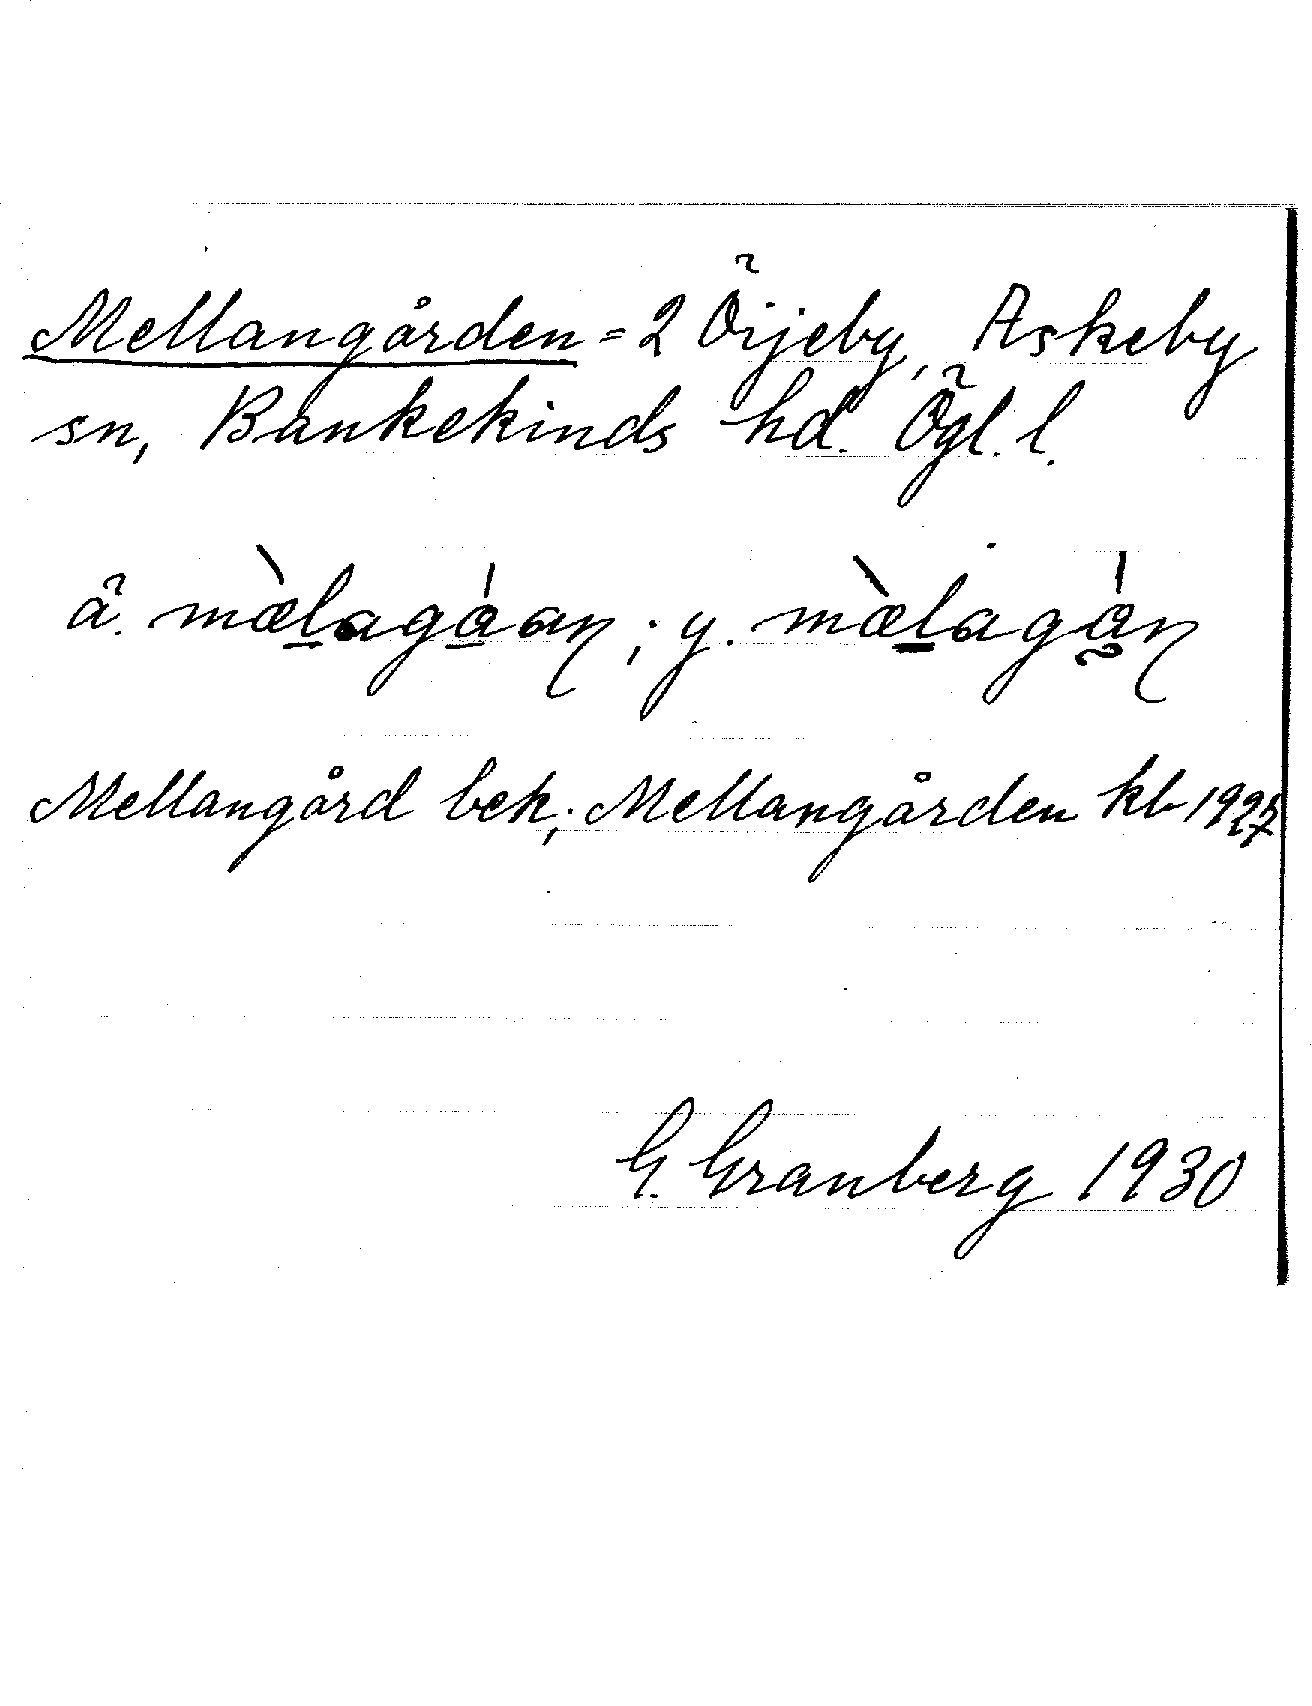 Mellangården = 2 Örjeby, Askeby
sn, Bankekinds hd. Ögl. l.
ä. mæ̀lagáan; y. mæ̀lagán
Mellangård bek; Mellangården kb 1927
G. Granberg 1930